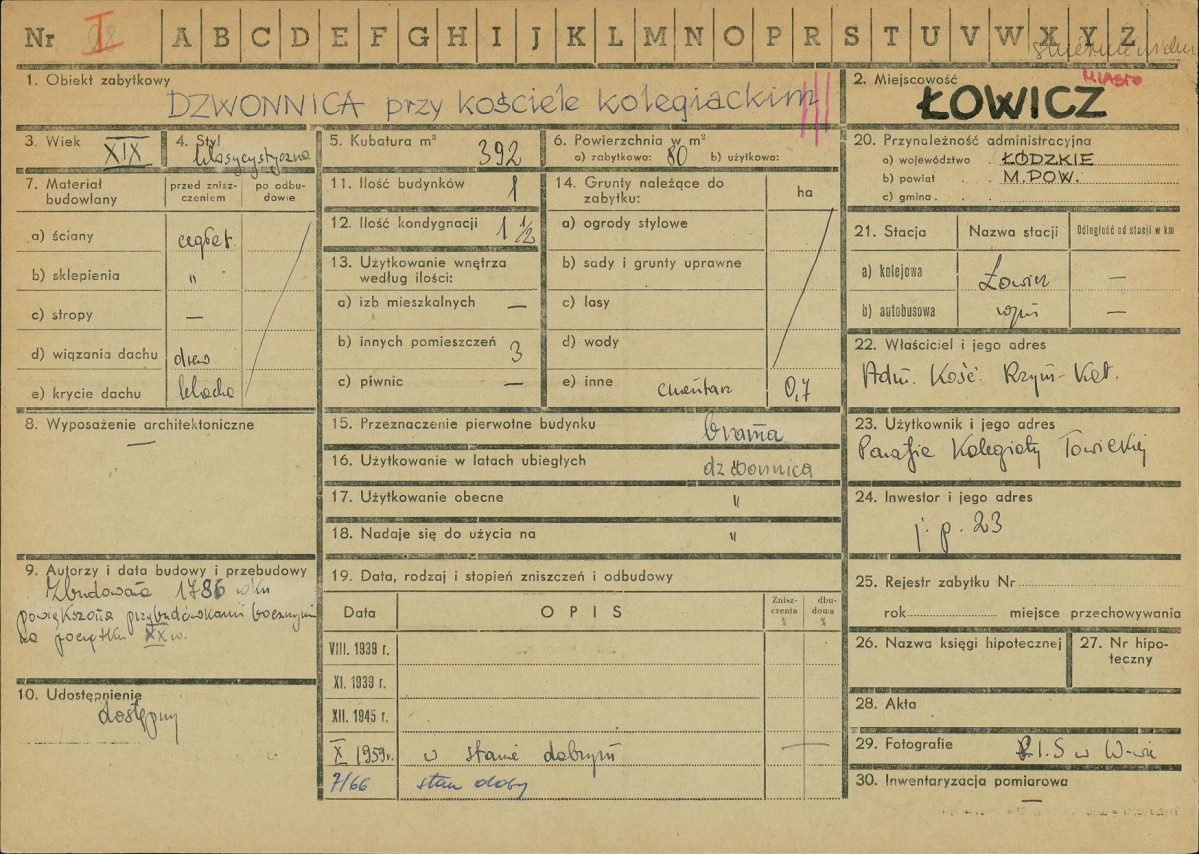 Nr I A B C D E F G H I J K L M N O P R S T U V W X Y Z
1. Obiekt zabytkowy
DZWONNICA przy kościele kolegiackim
2. Miejscowość
MIASTO
ŁOWICZ
3. Wiek XIX
4. Styl klasycystyczna
5. Kubatura m³ 392
6. Powierzchnia w m²
a) zabytkowa: 80 b) użytkowo:
7. Materiał budowlany
przed znisz-
czeniem
po odbu-
dowie
a) ściany cegła
b) sklepienia "
c) stropy —
d) wiązania dachu drew.
e) krycie dachu blacha
8. Wyposażenie architektoniczne
—
9. Autorzy i data budowy i przebudowy
Zbudowana 1786 roku
powiększona przybudówkami bocznymi
na początku XX w.
10. Udostępnienie
dostępny
11. Ilość budynków 1
12. Ilość kondygnacji 1 1/2
13. Użytkowanie wnętrza
według ilości:
a) izb mieszkalnych —
b) innych pomieszczeń 3
c) piwnic —
14. Grunty należące do
zabytku:
ha
a) ogrody stylowe
b) sady i grunty uprawne
c) lasy
d) wody
e) inne cmentarz 0,7
15. Przeznaczenie pierwotne budynku brama
16. Użytkowanie w latach ubiegłych dzwonnica
17. Użytkowanie obecne "
18. Nadaje się do użycia na "
19. Data, rodzaj i stopień zniszczeń i odbudowy
Data
OPIS
Znisz-
czenia
%
dbu-
dowa
%
VIII. 1939 r.
XI. 1939 r.
XII. 1945 r.
X 1959 r. w stanie dobrym —
7/66 stan dobry
20. Przynależność administracyjna
a) województwo ŁÓDZKIE
b) powiat M. POW.
c) gmina
21. Stacja
Nazwa stacji
Odległość od stacji w km
a) kolejowa Łowicz —
b) autobusowa —
22. Właściciel i jego adres
Adm. Kość. Rzym-Kat.
23. Użytkownik i jego adres
Parafia Kolegiaty Łowickiej
24. Inwestor i jego adres
j. p. 23
25. Rejestr zabytku Nr
rok miejsce przechowywania
26. Nazwa księgi hipotecznej
27. Nr hipo-
teczny
28. Akta
29. Fotografie P.I.S w W-wie
30. Inwentaryzacja pomiarowa
—